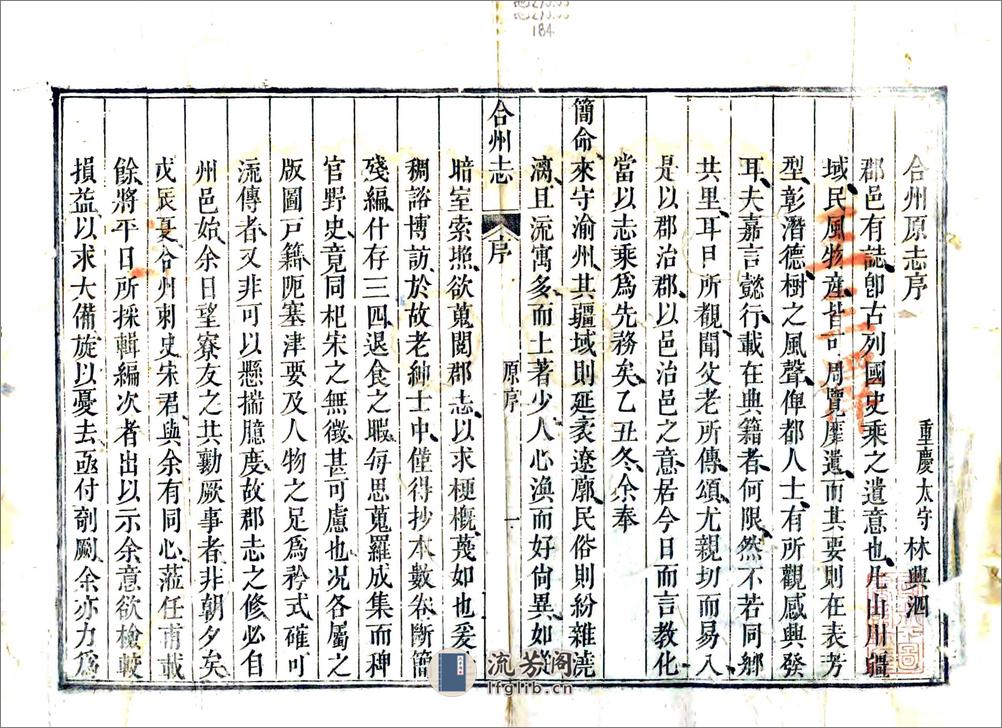 184
合州原志序
重慶太守林興泗
郡邑有誌卽古列國史乘之遺意也凡山川疆
域民風物產皆可周覽靡遺而其要則在表芳
型彰潛德樹之風聲俾都人士有所觀感興發
耳夫嘉言懿行載在典籍者何限然不若同鄉
共里耳目所覩聞父老所傳頌尤親切而易入
是以郡治郡以邑治邑之意居今日而言教化
當以志乘爲先務矣乙丑冬余奉
簡命來守渝州其疆域則延袤遼廓民俗則紛雜澆
漓且流寓多而土著少人心渙而好尙異如
合州志
序
原序
一
暗室索照欲蒐閱郡志以求梗槪茂如也爰
稠諮博訪於故老紳士中僅得抄本數卷斷簡
殘編什存三四退食之暇每思蒐羅成集而稗
官野史竟同杞宋之無徵甚可慮也况各屬之
版圖戸籍阨塞津要及人物之足爲矜式確可
流傳者又非可以懸揣臆度故郡志之修必自
州邑始余日望寮友之共勷厥事者非朝夕矣
戊辰夏合州刺史宋君與余有同心蒞任甫載
餘將平日所採輯編次者出以示余意欲檢較
損益以求大備旋以憂去亟付剞劂余亦力爲
流芳阁
lfglib.cn